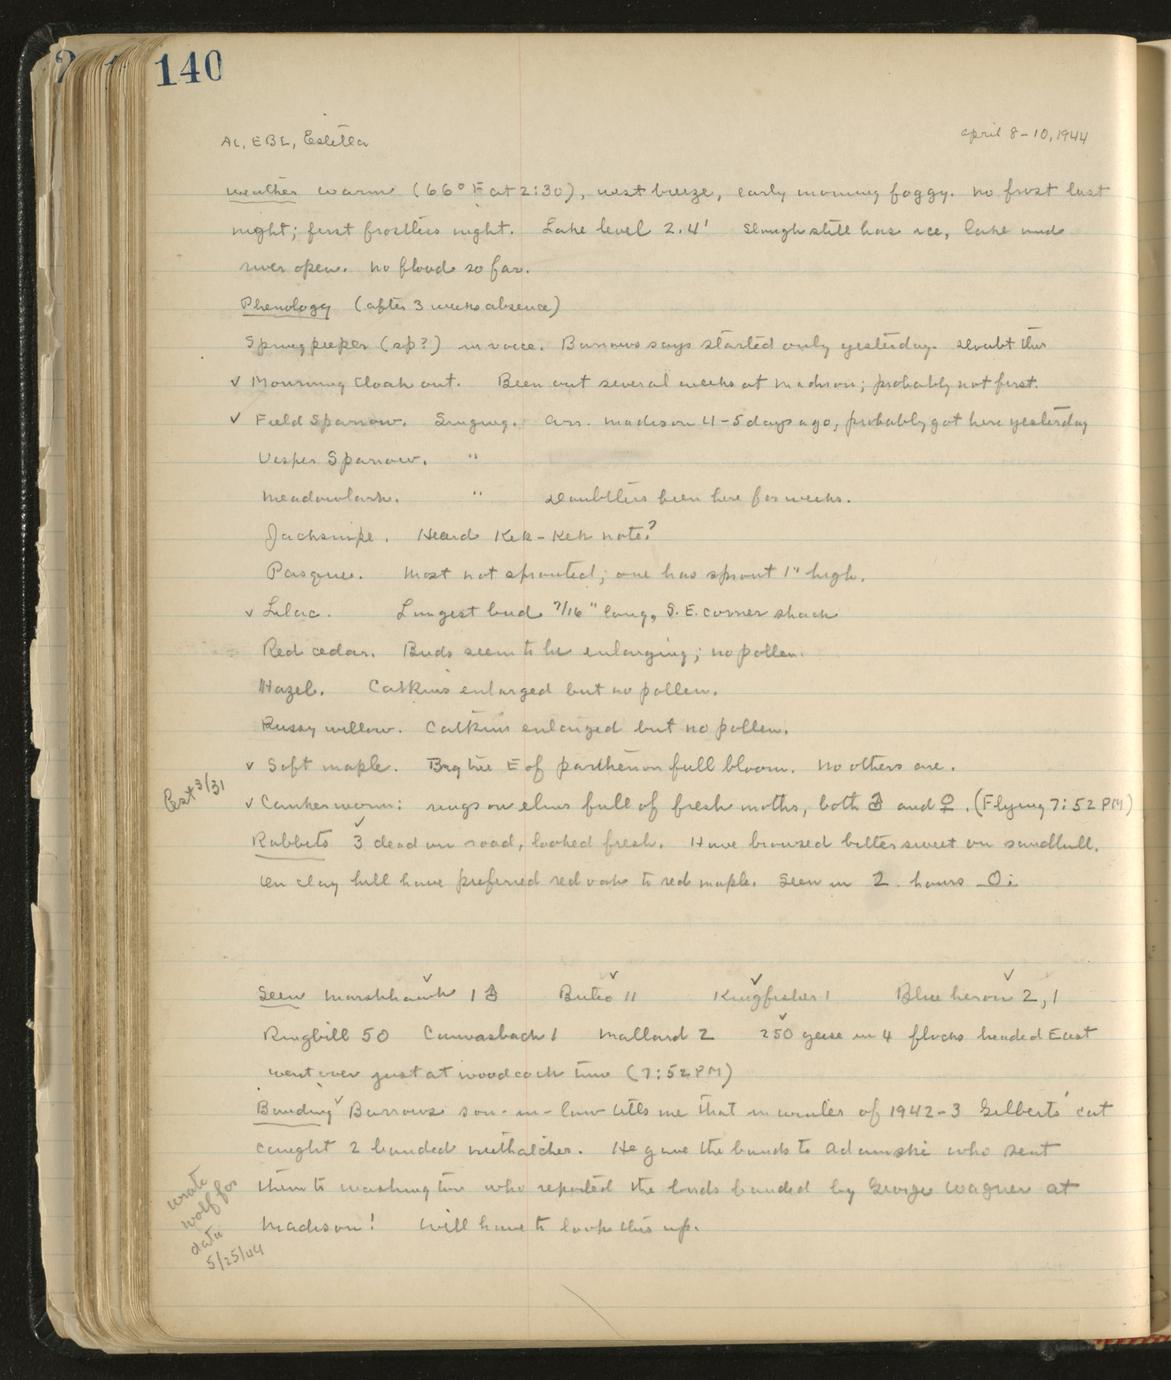 140
AL, EBL, Estella
April 8-10, 1944
Weather warm (66° F at 2:30), west breeze, early morning foggy. No frost last
night; first frostless night. Lake level 2.4' Slough still has ice, lake and
river open. No flood so far.
Phenology (after 3 weeks absence)
Spring peeper (sp?) in voice. Burrows says started only yesterday. Doubt this
✓ Mourning Cloak out. Been out several weeks at Madison; probably not first.
✓ Field Sparrow. Singing. Arr. Madison 4-5 days ago, probably got here yesterday
Vesper Sparrow. "
Meadowlark. " Doubtless been here for weeks.
Jacksnipe. Heard Kek-Kek note?
Pasque. Most not sprouted; one has sprout 1" high.
✓ Lilac. Longest bud 7/16" long, S.E. corner shack
Red cedar. Buds seem to be enlarging; no pollen.
Hazel. Catkins enlarged but no pollen.
Pussy willow. Catkins enlarged but no pollen.
✓ Soft maple. Big tree E of parthenon full bloom. No others are.
Est 3/31
✓ Cankerworm: rings on elms full of fresh moths, both ♂ and ♀. (Flying 7:52 PM)
Rabbits ✓ 3 dead on road, looked fresh. Have browsed bittersweet on sandhill.
On clay hill have preferred red oak to red maple. Seen in 2 hours 0.
Seen Marshhawk ✓ 1 ♂ Buteo ✓ 11 Kingfisher ✓ 1 Blue heron ✓ 2, 1
Ringbill 50 Canvasback 1 Mallard 2 ✓ 250 geese in 4 flocks headed East
went over just at woodcock time (7:52 PM)
Banding ✓ Burrows son-in-law tells me that in winter of 1942-3 Gilberts' cat
caught 2 banded nuthatches. He gave the bands to Adamski who sent
them to Washington who reported the birds banded by George Wagner at
Madison! Will have to look this up.
wrote
wolf for
data
5/25/44